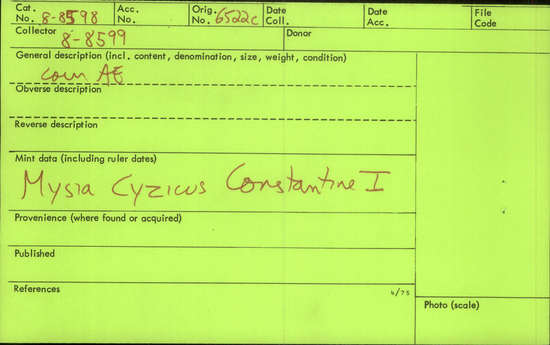 Cat. No. 8-8598 Acc. No. Orig. No. 6522c Date Coll. Date Acc. File Code
Collector 8-8599 Donor
General description (incl. content, denomination, size, weight, condition)
coin AE
Obverse description
Reverse description
Mint data (including ruler dates)
Mysia Cyzicus Constantine I
Provenience (where found or acquired)
Published
References 4/75
Photo (scale)